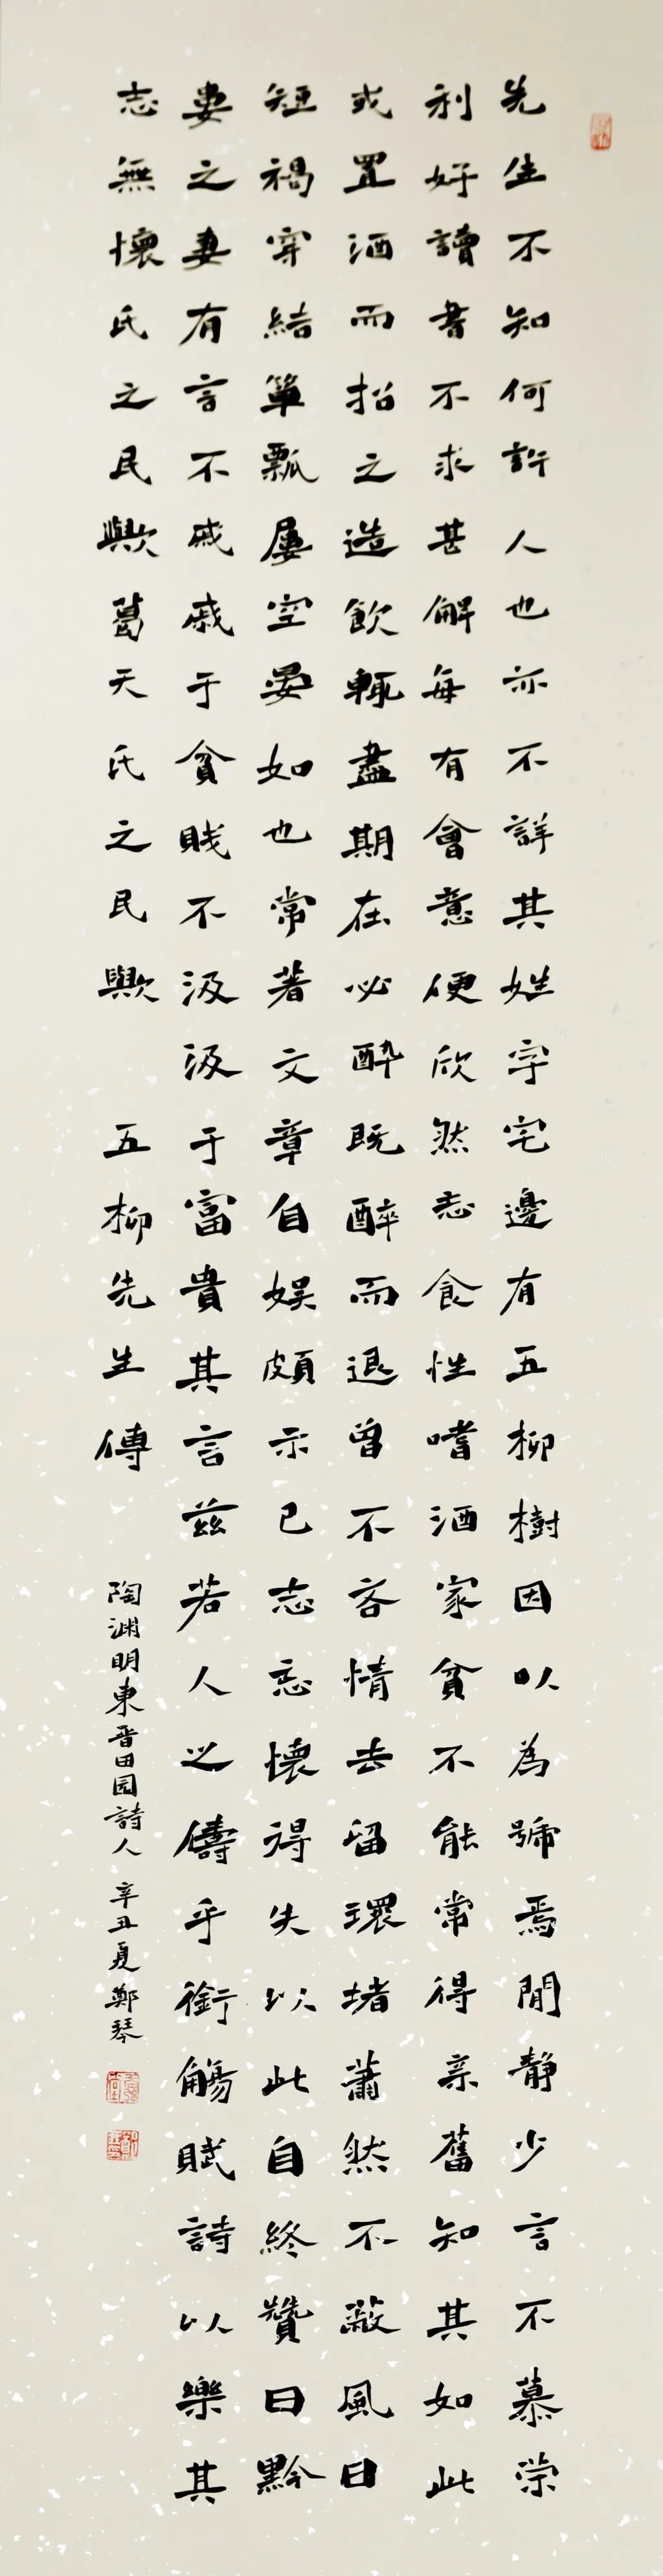 先生不知何許人也亦不詳其姓字宅邊有五柳樹因以為號焉閒靜少言不慕榮
利好讀書不求甚解每有會意便欣然忘食性嗜酒家貧不能常得亲舊知其如此
或置酒而招之造飲輒盡期在必醉既醉而退曾不吝情去留環堵蕭然不蔽風日
短褐穿結簞瓢屢空晏如也常著文章自娛頗示己志忘懷得失以此自終贊曰黔
婁之妻有言不戚戚于貧賤不汲汲于富貴其言茲若人之儔乎銜觴賦詩以樂其
志無懷氏之民歟葛天氏之民歟 五柳先生傳 陶渊明東晉田园詩人 辛丑夏鄭琴